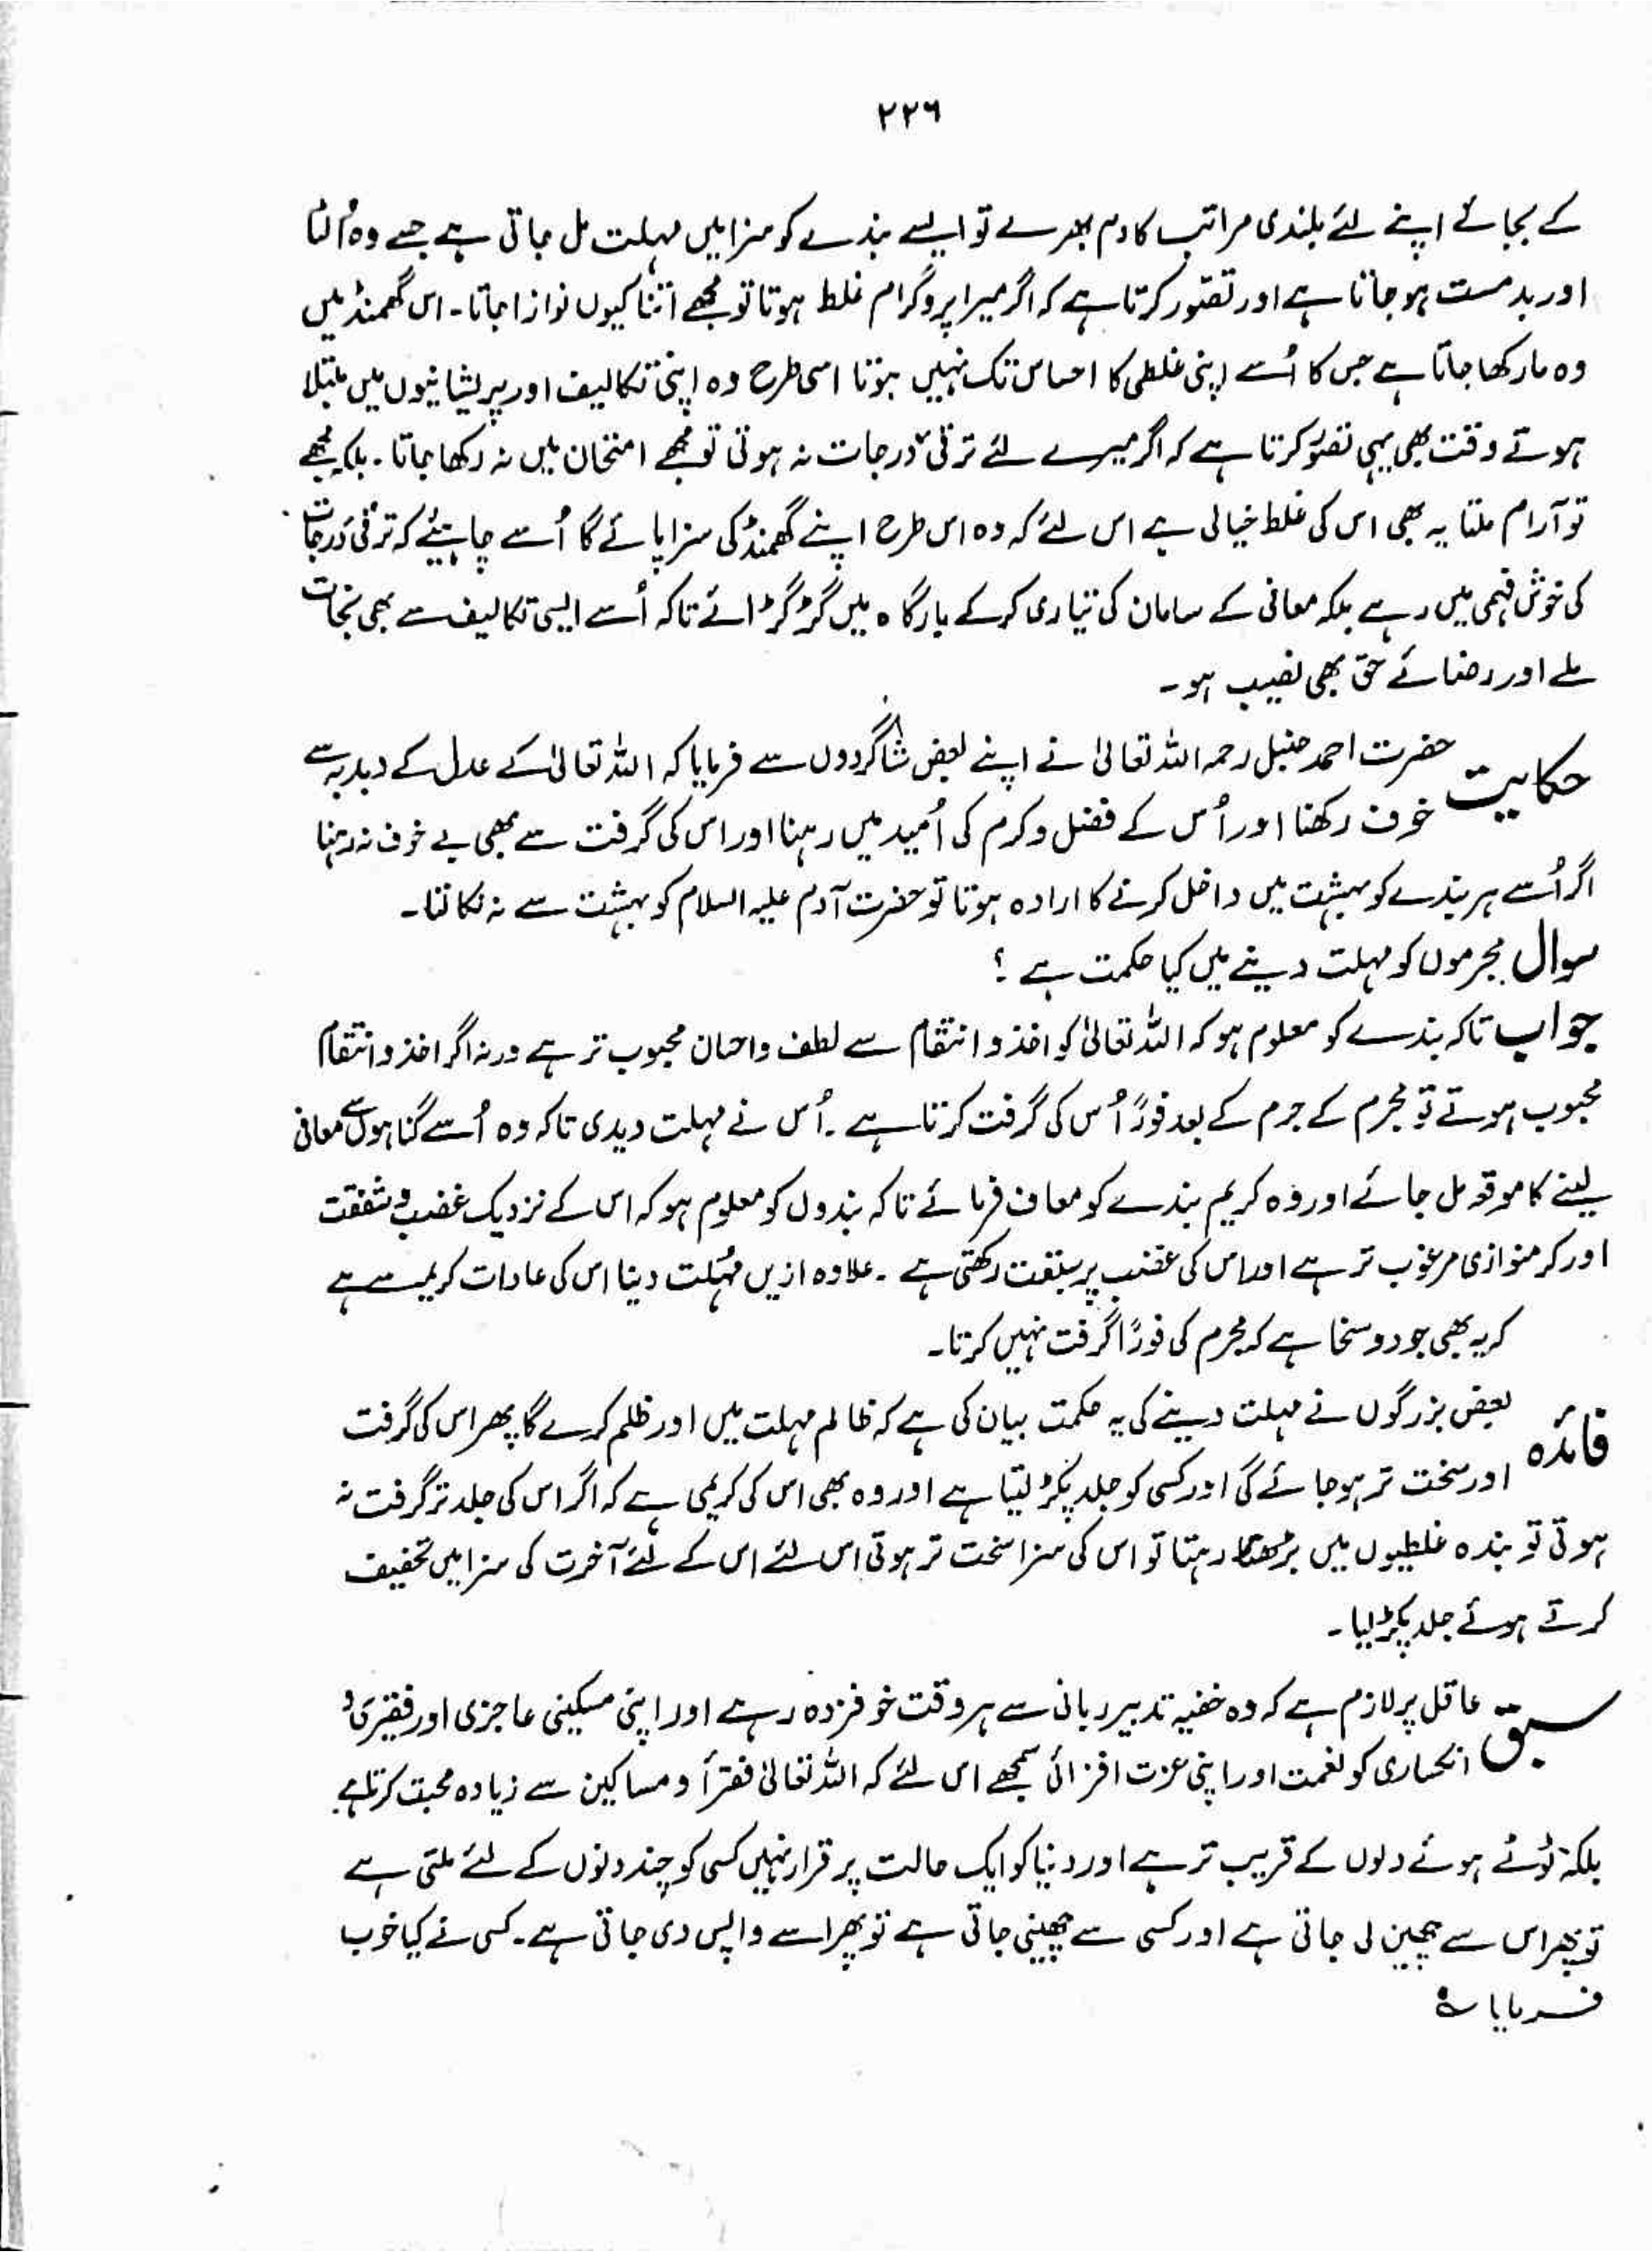 ۲۲۶
کے بجائے اپنے لئے بلندی مراتب کا دم بھرے تو ایسے بندے کو سزا میں مہلت مل جاتی ہے جسے وہ اُلٹا
اور بدمست ہو جاتا ہے اور تصور کرتا ہے کہ اگر میرا پروگرام غلط ہوتا تو مجھے اتنا کیوں نوازا جاتا۔ اس گھمنڈ میں
وہ مار کھا جاتا ہے جس کا اُسے اپنی غلطی کا احساس تک نہیں ہوتا اسی طرح وہ اپنی تکالیف اور پریشانیوں میں مبتلا
ہوتے وقت بھی یہی تصوّر کرتا ہے کہ اگر میرے لئے ترقیٔ درجات نہ ہوتی تو مجھے امتحان میں نہ رکھا جاتا۔ بلکہ مجھے
تو آرام ملتا یہ بھی اس کی غلط خیالی ہے اس لئے کہ وہ اس طرح اپنے گھمنڈ کی سزا پائے گا اُسے چاہیئے کہ ترقی درجات
کی خوش فہمی میں رہے بلکہ معافی کے سامان کی تیاری کر کے بارگاہ میں گڑگڑائے تاکہ اُسے ایسی تکالیف سے بھی نجات
ملے اور رضائے حق بھی نصیب ہو۔
حکایت حضرت احمد حنبل رحمہ اللہ تعالیٰ نے اپنے بعض شاگردوں سے فرمایا کہ اللہ تعالیٰ کے عدل کے دبدبہ سے
خوف رکھنا اور اُس کے فضل و کرم کی اُمید میں رہنا اور اس کی گرفت سے بھی بے خوف نہ رہنا
اگر اُسے ہر بندے کو بہشت میں داخل کرنے کا ارادہ ہوتا تو حضرت آدم علیہ السلام کو بہشت سے نہ نکالتا۔
سوال مجرموں کو مہلت دینے میں کیا حکمت ہے ؟
جواب تاکہ بندے کو معلوم ہو کہ اللہ تعالیٰ کو اخذ و انتقام سے لطف و احسان محبوب تر ہے ورنہ اگر اخذ و انتقام
محبوب ہوتے تو مجرم کے جرم کے بعد فوراً اُس کی گرفت کرتا ہے۔ اُس نے مہلت دیدی تاکہ وہ اُسے گناہوں سے معافی
لینے کا موقعہ مل جائے اور وہ کریم بندے کو معاف فرمائے تاکہ بندوں کو معلوم ہو کہ اس کے نزدیک غضب و شفقت
اور کرم نوازی مرغوب تر ہے اور اس کی غضب پر سبقت رکھتی ہے۔ علاوہ ازیں مہلت دینا اس کی عادات کریمہ سے ہے
کریہ بھی جود و سخا ہے کہ مجرم کی فوراً گرفت نہیں کرتا۔
فائدہ بعض بزرگوں نے مہلت دینے کی یہ حکمت بیان کی ہے کہ ظالم مہلت میں اور ظلم کرے گا پھر اس کی گرفت
اور سخت تر ہو جائے گی اور کسی کو جلد پکڑ لیتا ہے اور وہ بھی اس کی کریمی ہے کہ اگر اس کی جلد تر گرفت نہ
ہوتی تو بندہ غلطیوں میں بڑھتا رہتا تو اس کی سزا سخت تر ہوتی اس لئے اس کے لئے آخرت کی سزا میں تخفیف
کرتے ہوئے جلد پکڑ لیا۔
سبق عاقل پر لازم ہے کہ وہ خفیہ تدبیر ربانی سے ہر وقت خوفزدہ رہے اور اپنی مسکینی عاجزی اور فقیری و
انکساری کو نعمت اور اپنی عزت افزائی سمجھے اس لئے کہ اللہ تعالیٰ فقرأ و مساکین سے زیادہ محبت کرتا ہے۔
بلکہ ٹوٹے ہوئے دلوں کے قریب تر ہے اور دنیا کو ایک حالت پر قرار نہیں کسی کو چند دنوں کے لئے ملتی ہے
تو پھر اس سے چھین لی جاتی ہے اور کسی سے چھینی جاتی ہے تو پھر اسے واپس دی جاتی ہے۔ کسی نے کیا خوب
فرمایا ؎